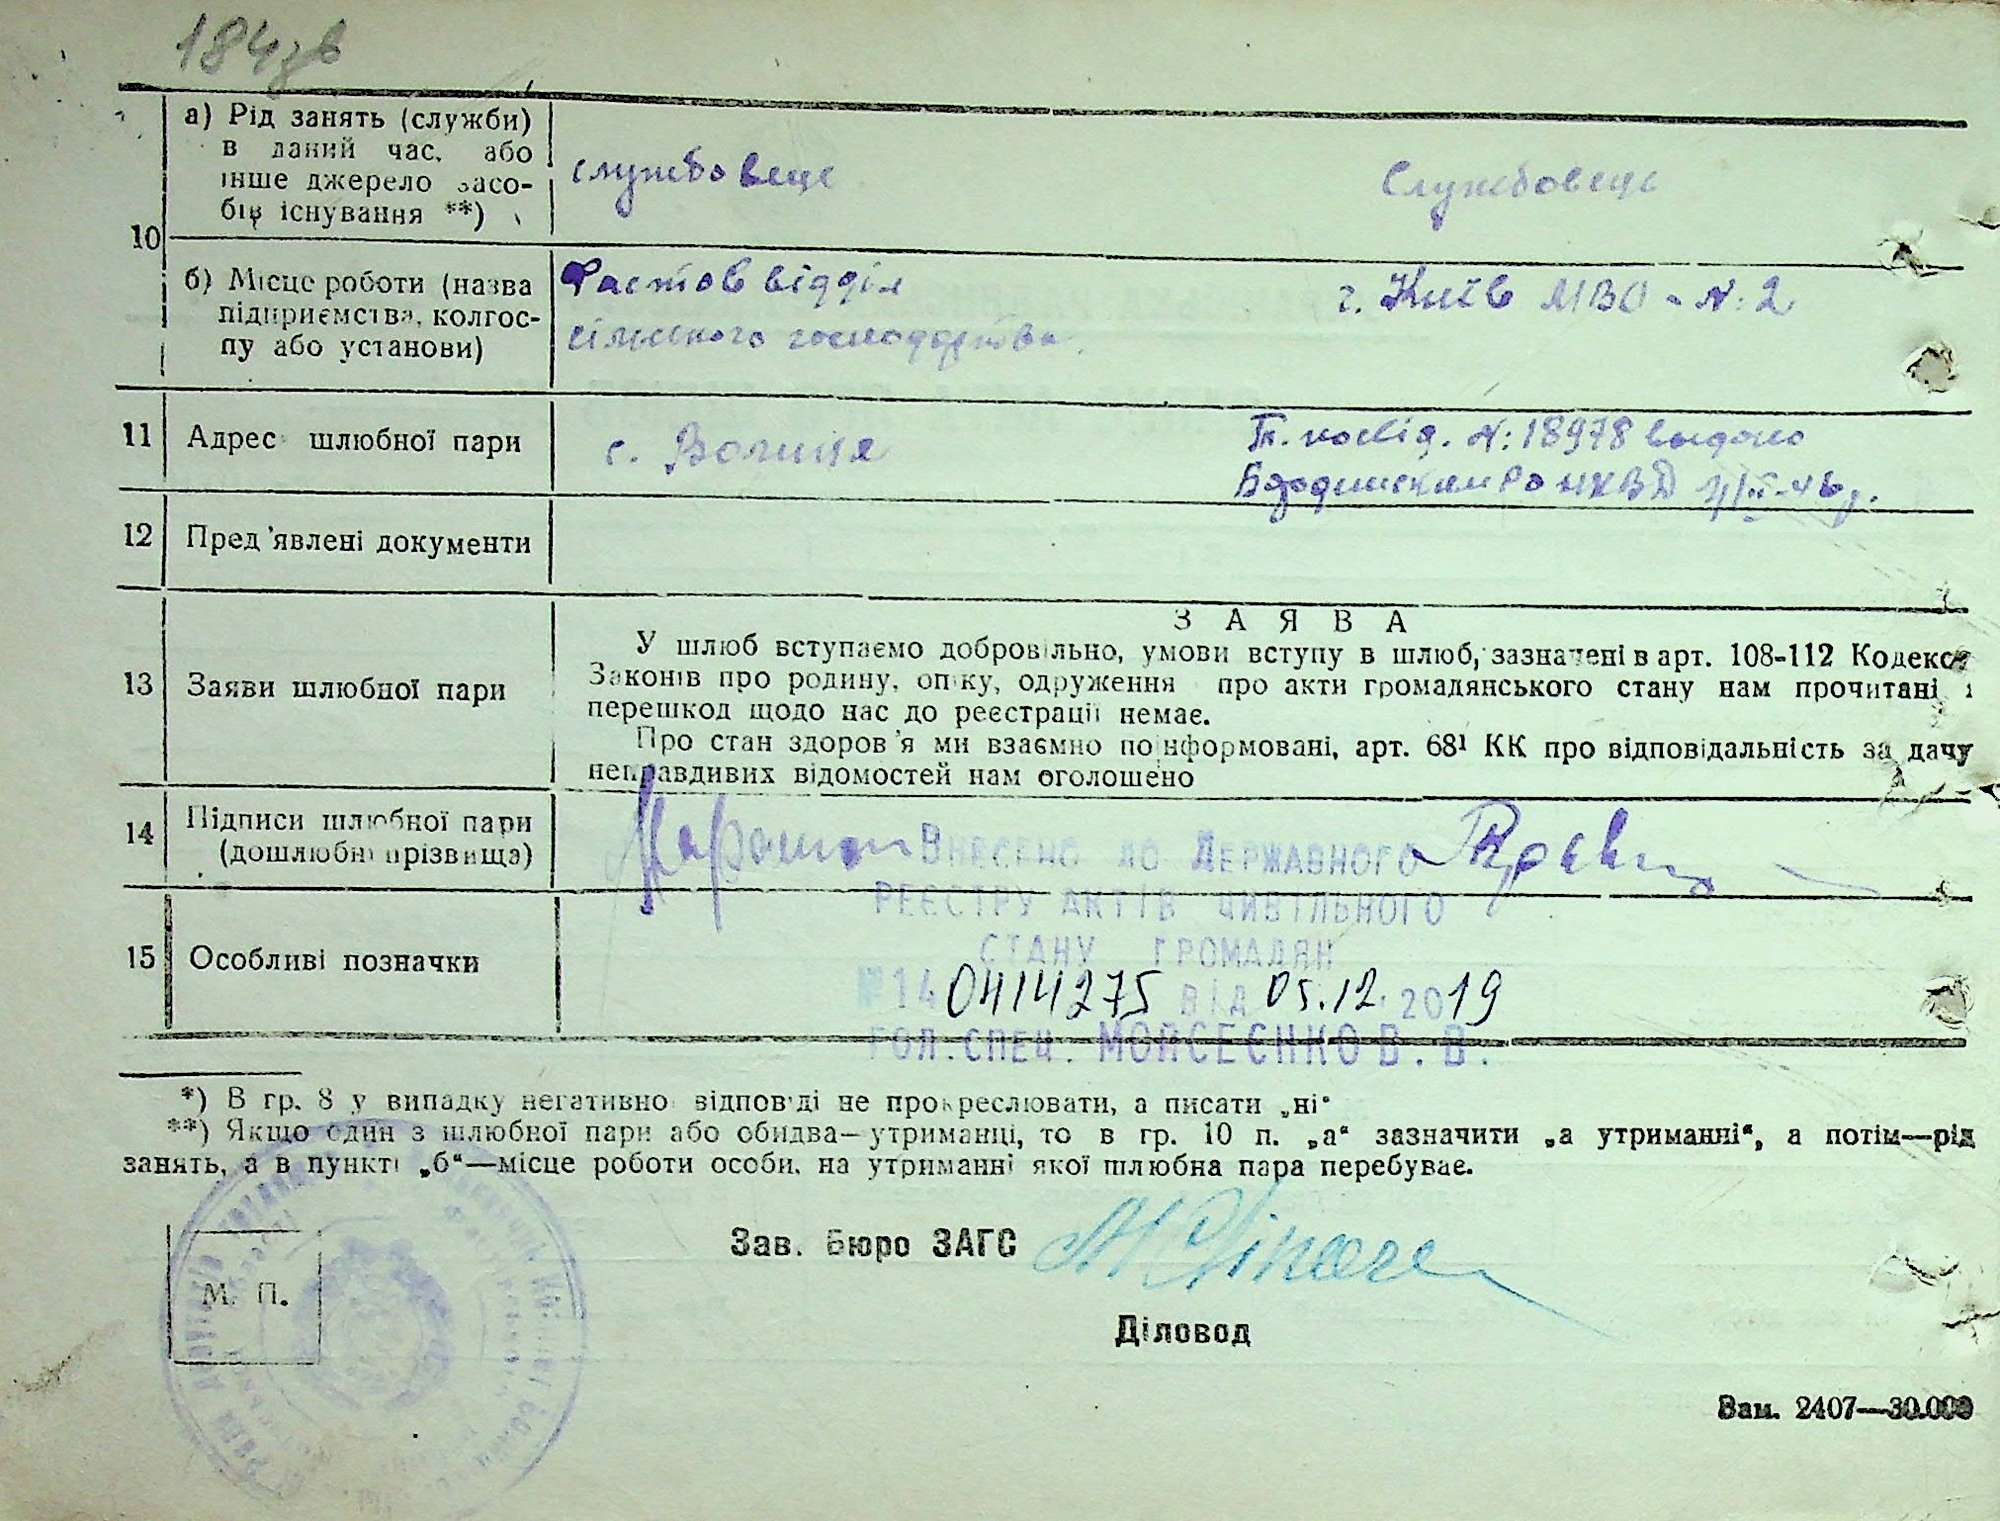 184зв
10
а) Рід занять (служби)
в даний час, або
інше джерело засо-
бів існування **)
службовець
Службовець
б) Місце роботи (назва
підприємства, колгос-
пу або установи)
Фастов відділ
сільського господарства.
г. Київ МВО - N: 2
11
Адрес шлюбної пари
с. Волиця
посвід. N: 18978 выдано
РО НКВД
12
Пред'явлені документи
13
Заяви шлюбної пари
ЗАЯВА
У шлюб вступаємо добровільно, умови вступу в шлюб, зазначені в арт. 108-112 Кодексу
Законів про родину, опіку, одруження про акти громадянського стану нам прочитані і
перешкод щодо нас до реєстрації немає.
Про стан здоров'я ми взаємно поінформовані, арт. 68¹ КК про відповідальність за дачу
неправдивих відомостей нам оголошено
14
Підписи шлюбної пари
(дошлюбні прізвища)
Внесено до Державного
реєстру актів цивільного
стану громадян
15
Особливі позначки
№14 0414275 від 05.12.2019
Гол. спец. Мойсеєнко В. В.
*) В гр. 8 у випадку негативної відповіді не прокреслювати, а писати „ні“
**) Якщо один з шлюбної пари або обидва—утриманці, то в гр. 10 п. „а“ зазначити „а утриманні“, а потім—рід
занять, а в пункті „б“—місце роботи особи, на утриманні якої шлюбна пара перебуває.
Зав. Бюро ЗАГС
М. П.
Діловод
Зам. 2407—30.000